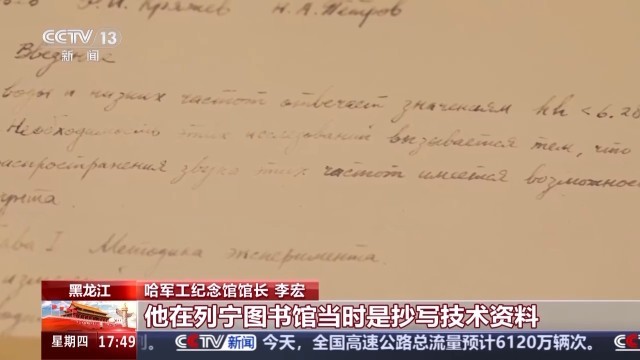 CCTV 13
新闻
Р. И. Кряжев Н. А. Петров
Введение
воды и низких частот отвечает значениям kh < 6.28
Необходимость этих исследований вызывается тем, что
распространения звука этих частот имеется возможнос
унта.
ава I Методика эксперимента.
黑龙江
哈军工纪念馆馆长 李宏
他在列宁图书馆当时是抄写技术资料
星期四 17:49 別。 CCTV新闻 今天，全国高速公路总流量预计6120万辆次。